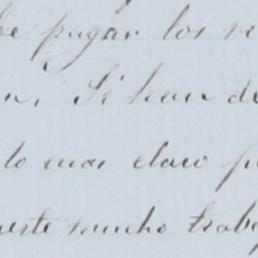 pagar los
Si han de
lo mas claro
mucho trabaj